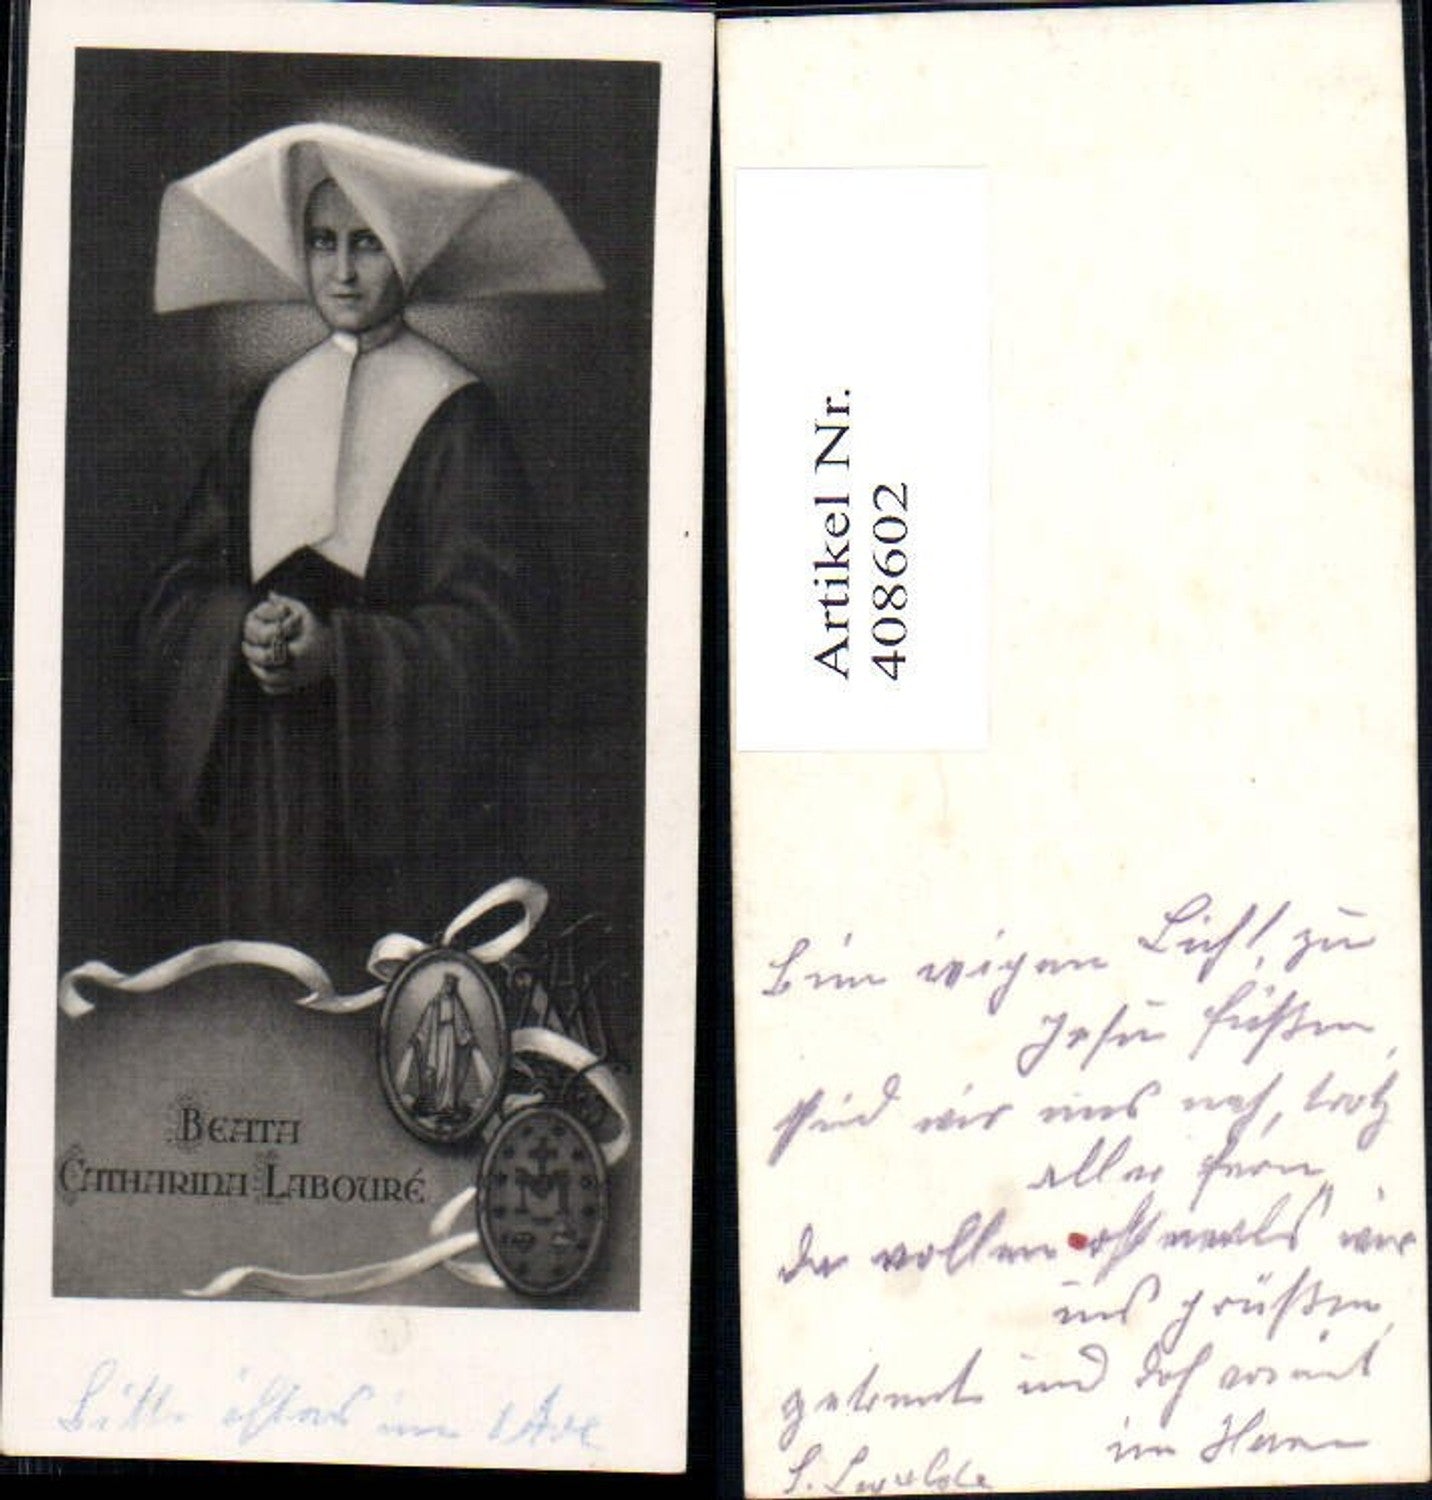 BEATA
CATHARINA LABOURÉ
Bitte öfters um 1 Ave
Artikel Nr.
408602
Beim ewigen Licht, zu
Jesu Füßen,
sind wir uns nah, trotz
aller Fern
da wollen oftmals wir
uns grüßen,
getrennt und doch vereint
im Herrn
S.